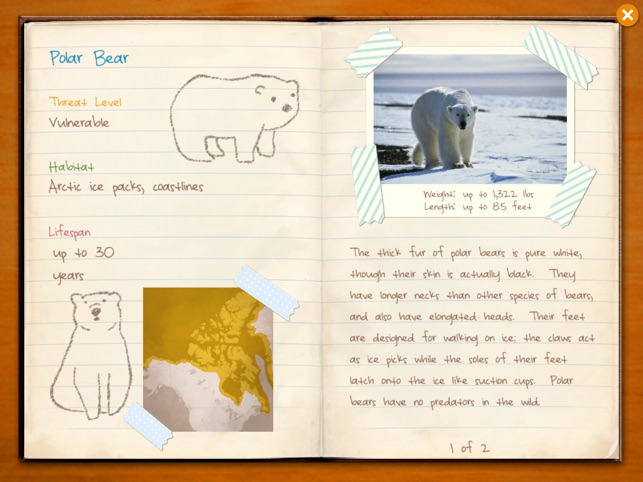 Polar Bear
Threat Level
Vulnerable
Habitat
Arctic ice packs, coastlines
Lifespan
up to 30
years
Weight: up to 1,322 lbs
Length: up to 8.5 feet
The thick fur of polar bears is pure white,
though their skin is actually black. They
have longer necks than other species of bears,
and also have elongated heads. Their feet
are designed for walking on ice; the claws act
as ice picks while the soles of their feet
latch onto the ice like suction cups. Polar
bears have no predators in the wild.
1 of 2